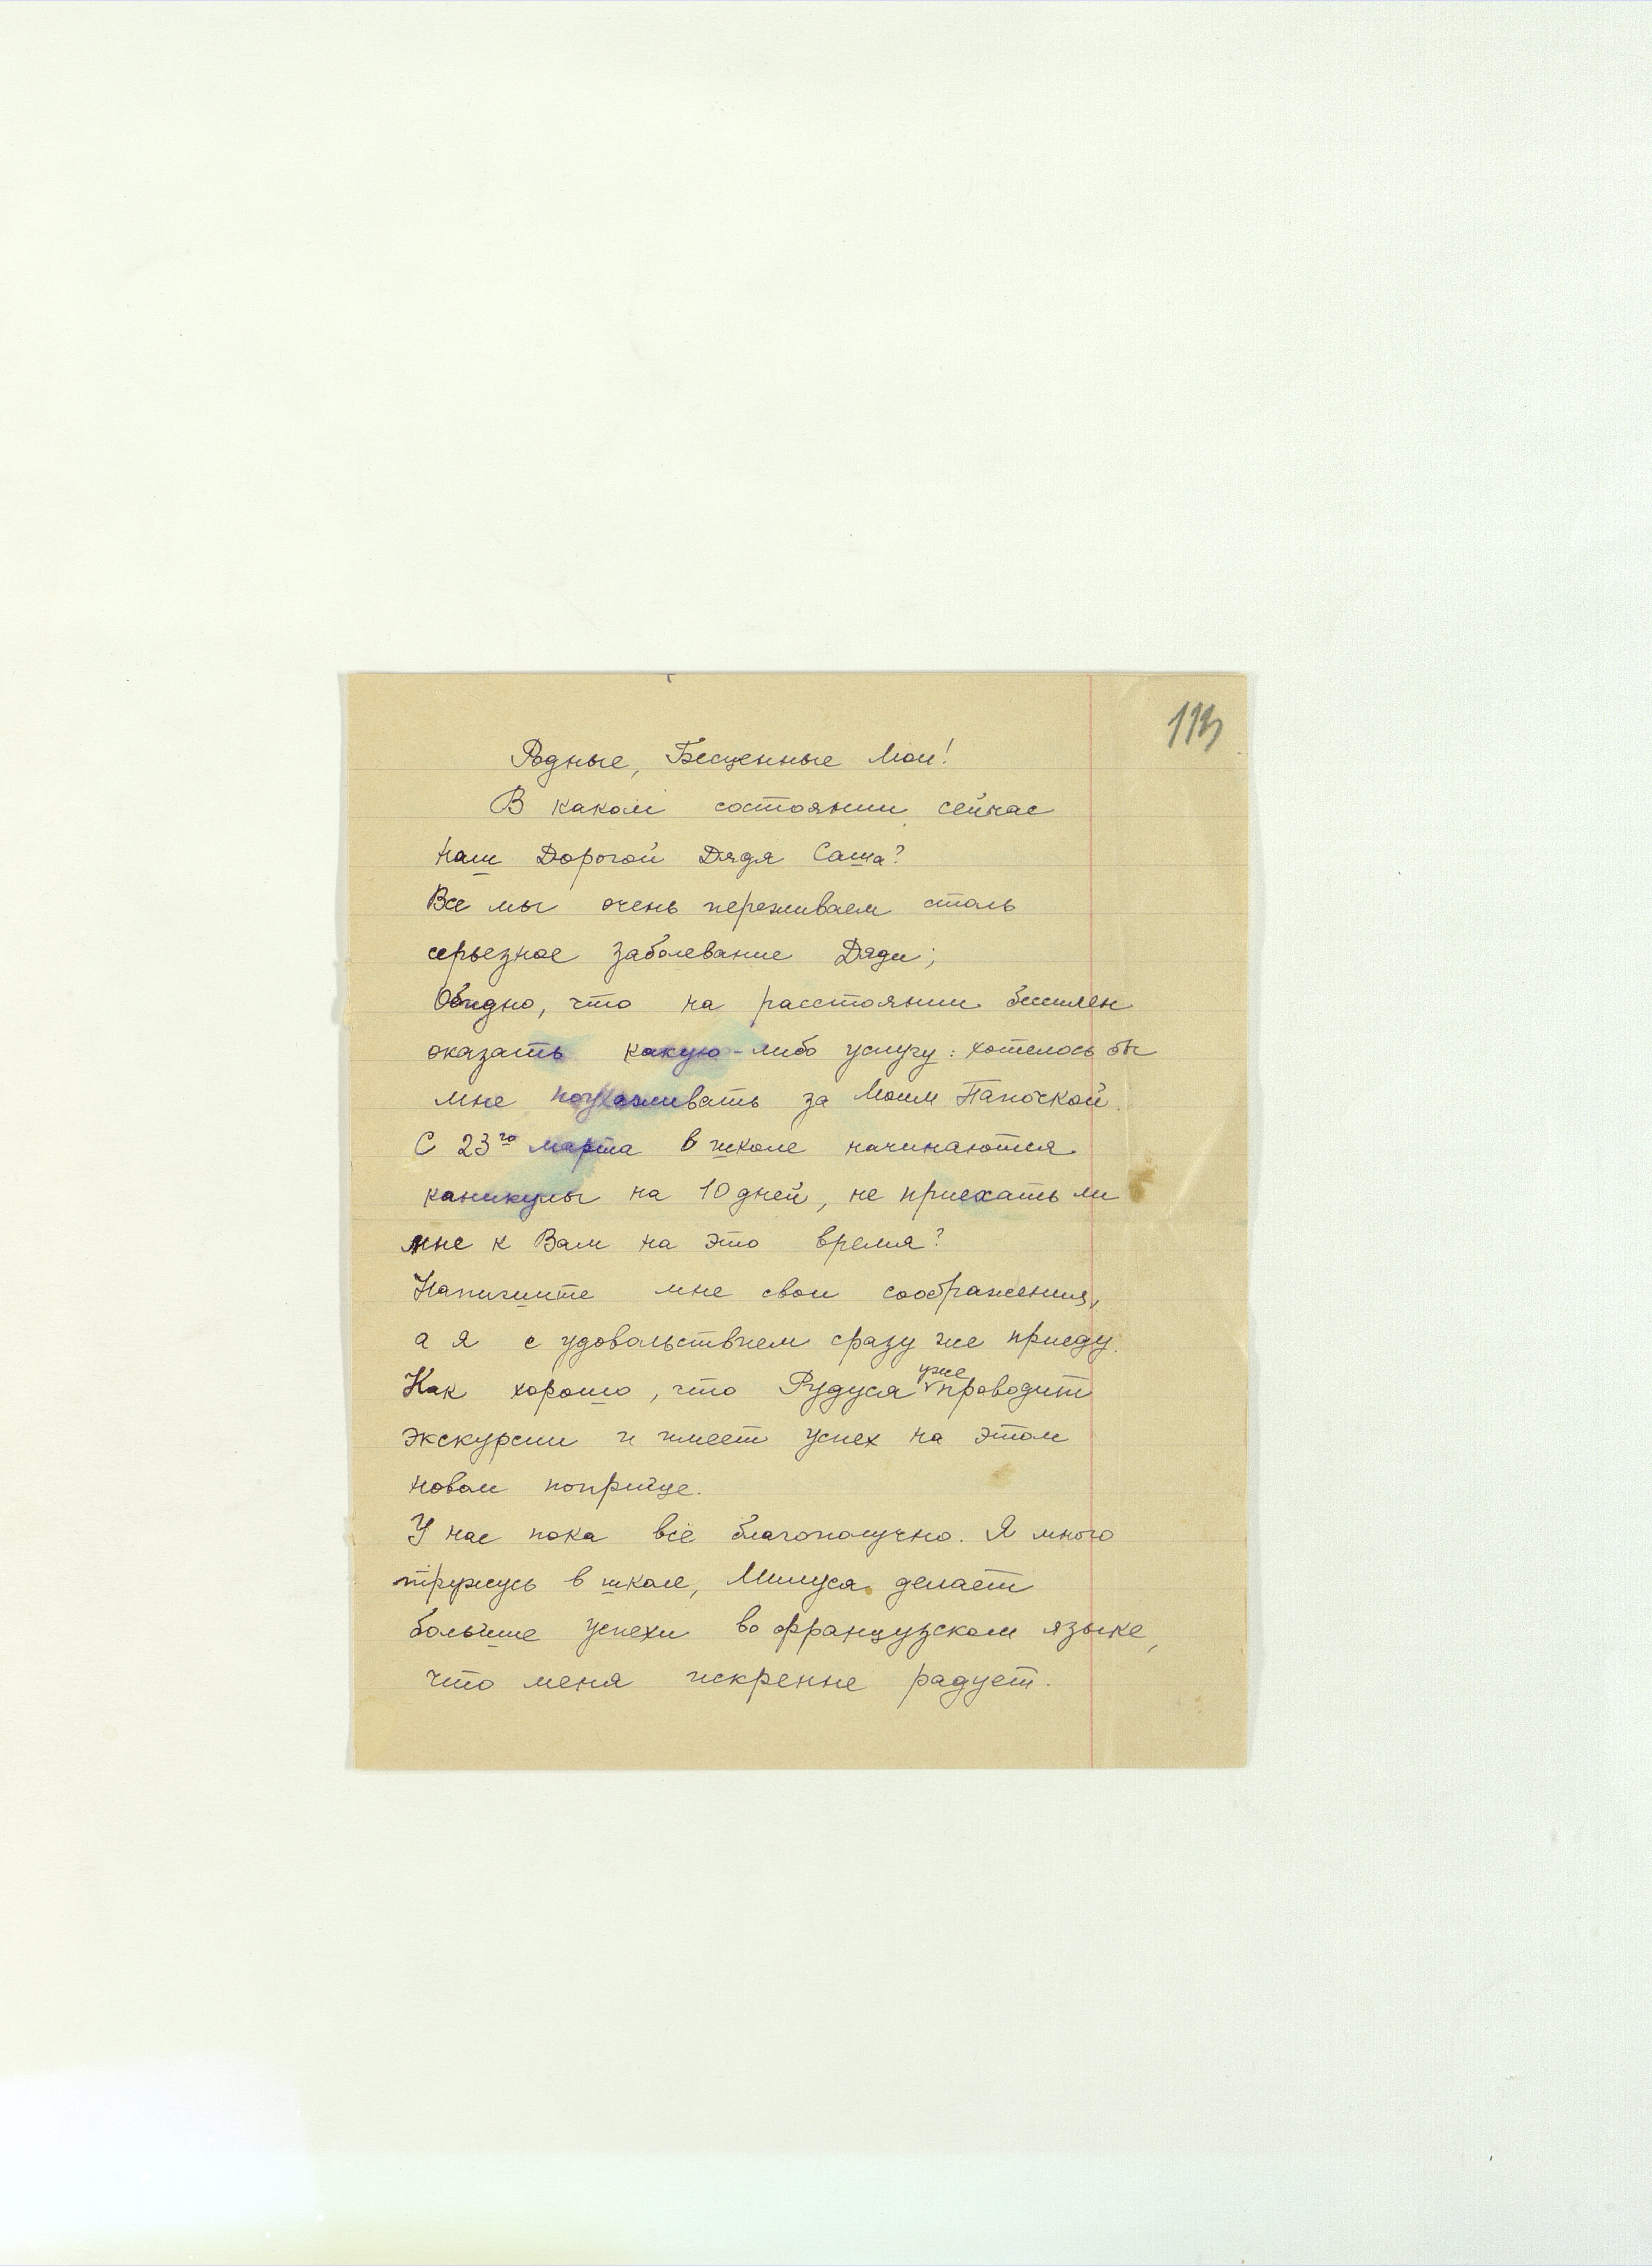 113
Родные, Бесценные Мои!
В каком состоянии сейчас
наш Дорогой Дядя Саша?
Все мы очень переживаем столь
серьезное заболевание Дяди;
Обидно, что на расстоянии бессилен
оказать какую-либо услугу: хотелось бы
мне поухаживать за Моим Папочкой.
С 23го марта в школе начинаются
каникулы на 10 дней, не приехать ли
мне к Вам на это время?
Напишите мне свои соображения,
а я с удовольствием сразу же приеду.
Как хорошо, что Рудуся уже проводит
экскурсии и имеет успех на этом
новом поприще.
У нас пока всё благополучно. Я много
тружусь в школе, Милуся делает
большие успехи во французском языке,
что меня искренне радует.